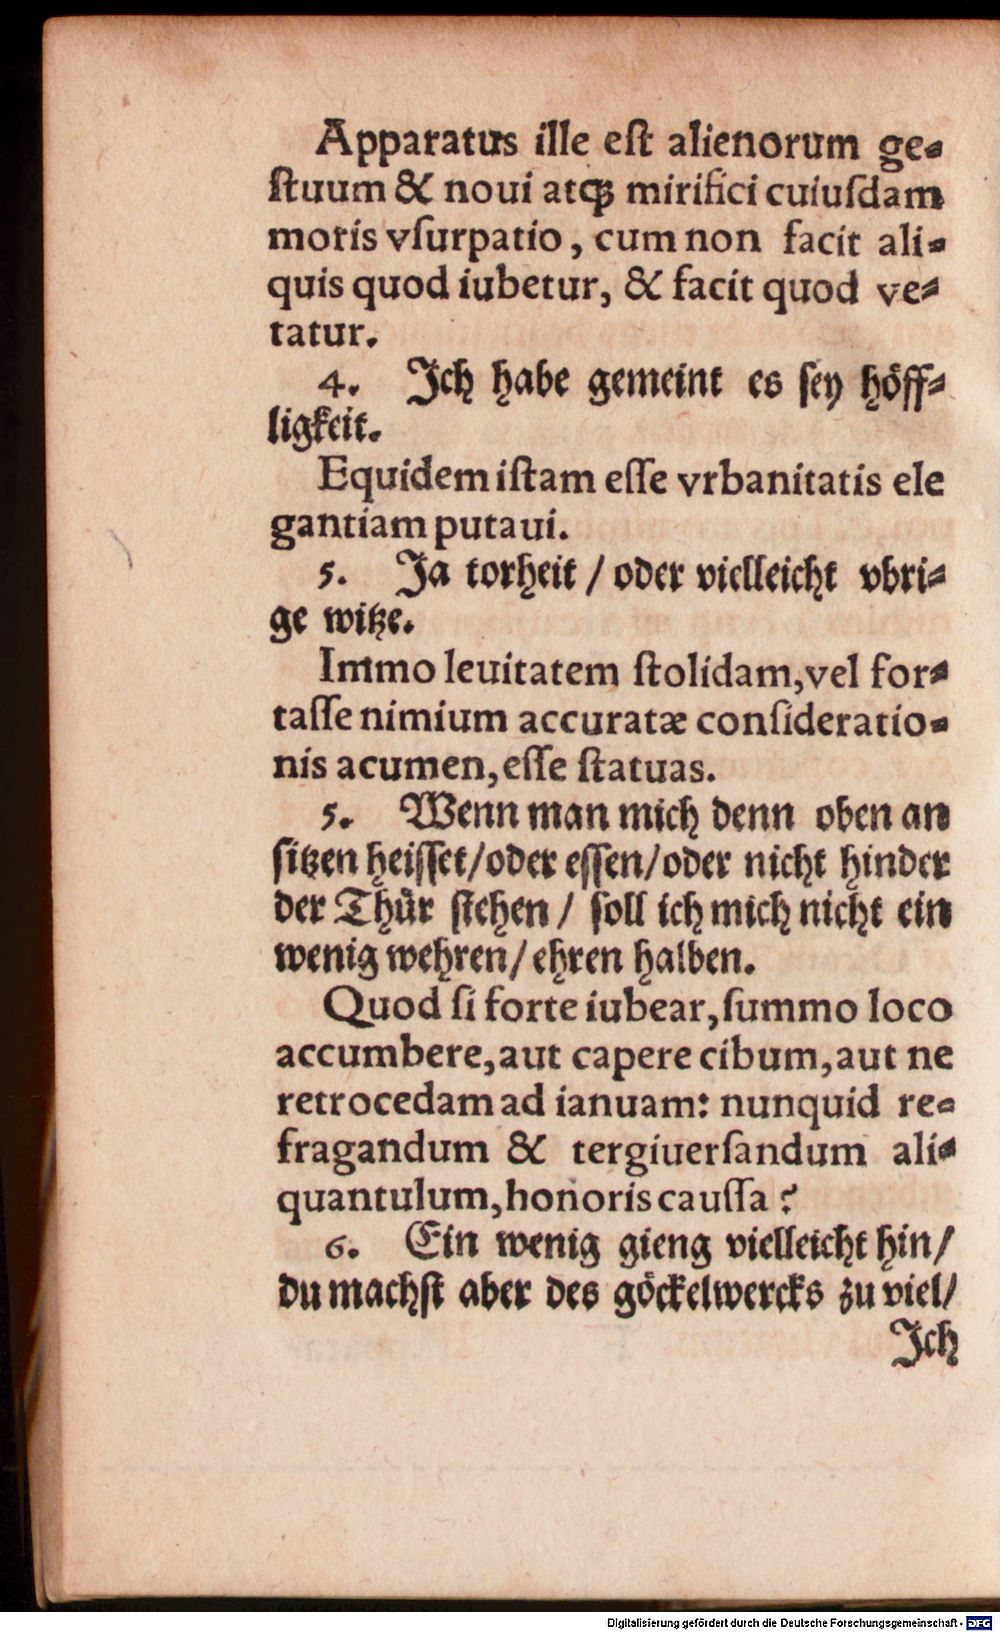 Apparatus ille est alienorum ge-
ſtuum & noui atq́; mirifici cuiuſdam
moris vſurpatio, cum non facit ali-
quis quod iubetur, & facit quod ve-
tatur.
4. Ich habe gemeint es ſey höff-
ligkeit.
Equidem iſtam eſſe vrbanitatis ele
gantiam putaui.
5. Ja torheit / oder vielleicht vbri-
ge witze.
Immo leuitatem ſtolidam, vel for-
taſſe nimium accuratæ conſideratio-
nis acumen, eſſe ſtatuas.
5. Wenn man mich denn oben an
ſitzen heiſſet/oder eſſen/oder nicht hinder
der Thür ſtehen / ſoll ich mich nicht ein
wenig wehren/ehren halben.
Quod ſi forte iubear, ſummo loco
accumbere, aut capere cibum, aut ne
retrocedam ad ianuam: nunquid re-
fragandum & tergiuerſandum ali-
quantulum, honoris cauſſa?
6. Ein wenig gieng vielleicht hin/
du machſt aber des göckelwercks zu viel/
Ich
Digitalisierung gefördert durch die Deutsche Forschungsgemeinschaft - DFG